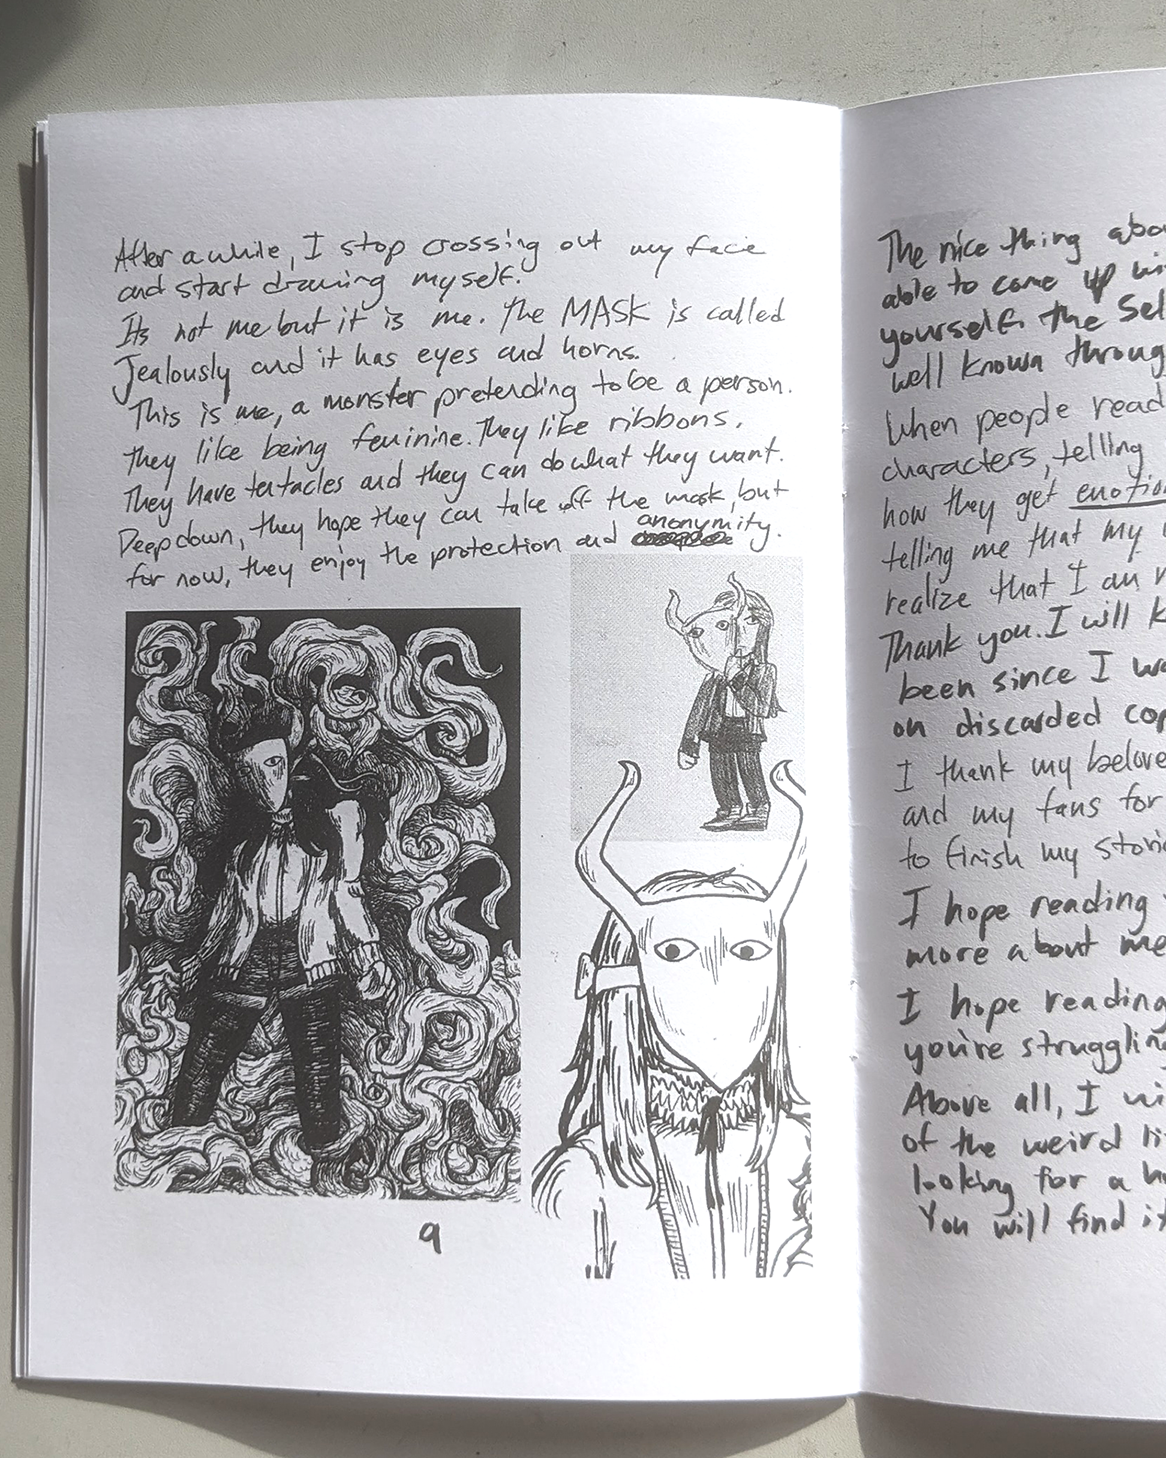 After a while, I stop crossing out my face
and start drawing myself.
Its not me but it is me. The MASK is called
Jealously and it has eyes and horns.
This is me, a monster pretending to be a person.
They like being feminine. They like ribbons.
They have tentacles and they can do what they want.
Deep down, they hope they can take off the mask, but
for now, they enjoy the protection and anonymity.
9
The nice thing
able to come up
yourself. The
well known
When people read
characters, telling
how they get
telling me that my
realize that I am
Thank you. I will
been since I
on discarded
I thank my
and my fans for
to finish my
I hope reading
more about me
I hope reading
you're
Above all, I
of the weird
looking for a
You will find